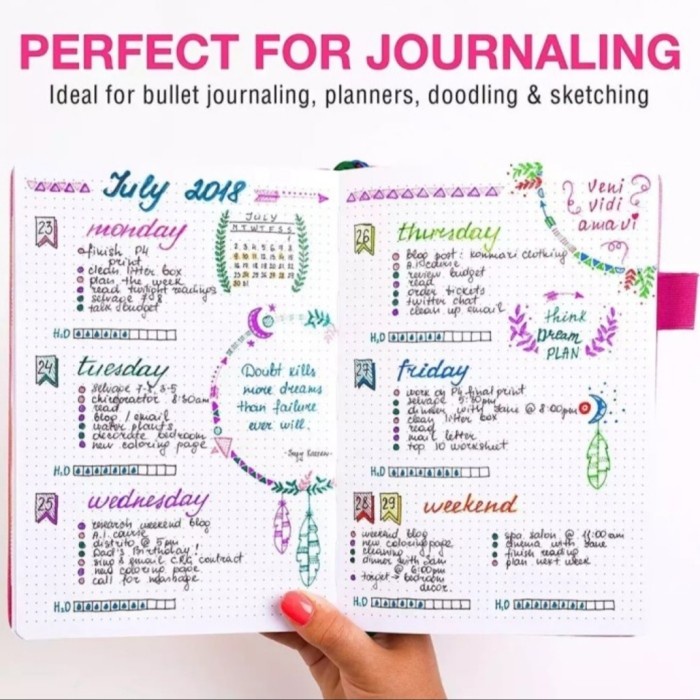 PERFECT FOR JOURNALING
Ideal for bullet journaling, planners, doodling & sketching
July 2018
23
monday
finish P4
print
clean litter box
plan the week
read twilight teachings
selvage 7-8
talk budget
H2O
JULY
M T W T F S S
24
tuesday
selvage 7-8, 3-5
chiropractor 8:30am
read
blog / email
water plants
decorate bedroom
new coloring page
H2O
25
wednesday
research weekend blog
A.I. course
distrito @ 5pm
Dad's Birthday!
ring & email C.R.G contract
new coloring page
call for
H2O
Doubt kills
more dreams
than failure
ever will.
26
thursday
blog post: konmari clothing
review budget
read
order tickets
twitter chat
clean up email
H2O
Veni
Vidi
amavi
think
Dream
PLAN
27
friday
work on P4 final print
selvage 5:30pm
dinner with Jane @ 8:00pm
clean litter box
read
mail letter
top 10 worksheet
H2O
28 29
weekend
weekend blog
new coloring page
cleaning
dinner with Sam
@ 6:00pm
target → bedroom
decor.
H2O
spa salon @ 11:00am
cinema with Jane
finish readup
plan next week
H2O